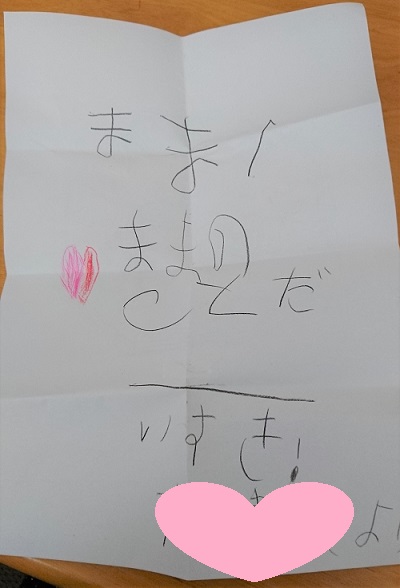 まま!
ままの
ことだ
いすき!
よ!